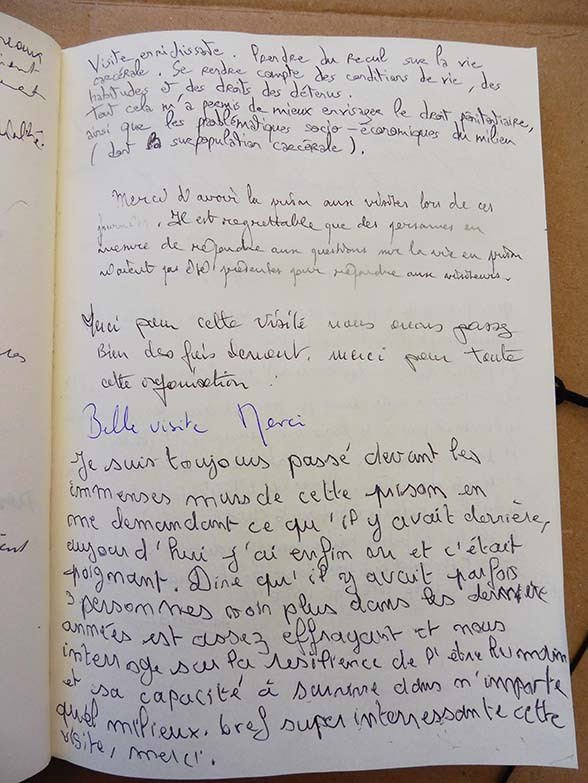 Visite enrichissante. Prendre du recul sur la vie
carcérale. Se rendre compte des conditions de vie, des
habitudes et des droits des détenus.
tout cela m'a permis de mieux envisager le droit pénitentiaire,
ainsi que les problématiques socio-économiques du milieu
(dont la surpopulation carcérale).
Merci d'avoir la prison aux visites lors de ces
journées. Il est regrettable que des personnes en
mesure de répondre aux questions sur la vie en prison
n'aient pas été présentes pour répondre aux visiteurs.
Merci pour cette visite nous avons passez
Bien des fois devant. merci pour toute
cette organisation
Belle visite Merci
Je suis toujours passé devant les
immenses murs de cette prison en
me demandant ce qu'il y avait derrière,
aujourd'hui j'ai enfin vu et c'était
poignant. Dire qu'il y avait parfois
3 personnes voir plus dans les dernière
années est assez effrayant et nous
interroge sur la resilience de l'être humain
et sa capacité à survivre dans n'importe
quel milieux. bref super interressante cette
visite, merci.